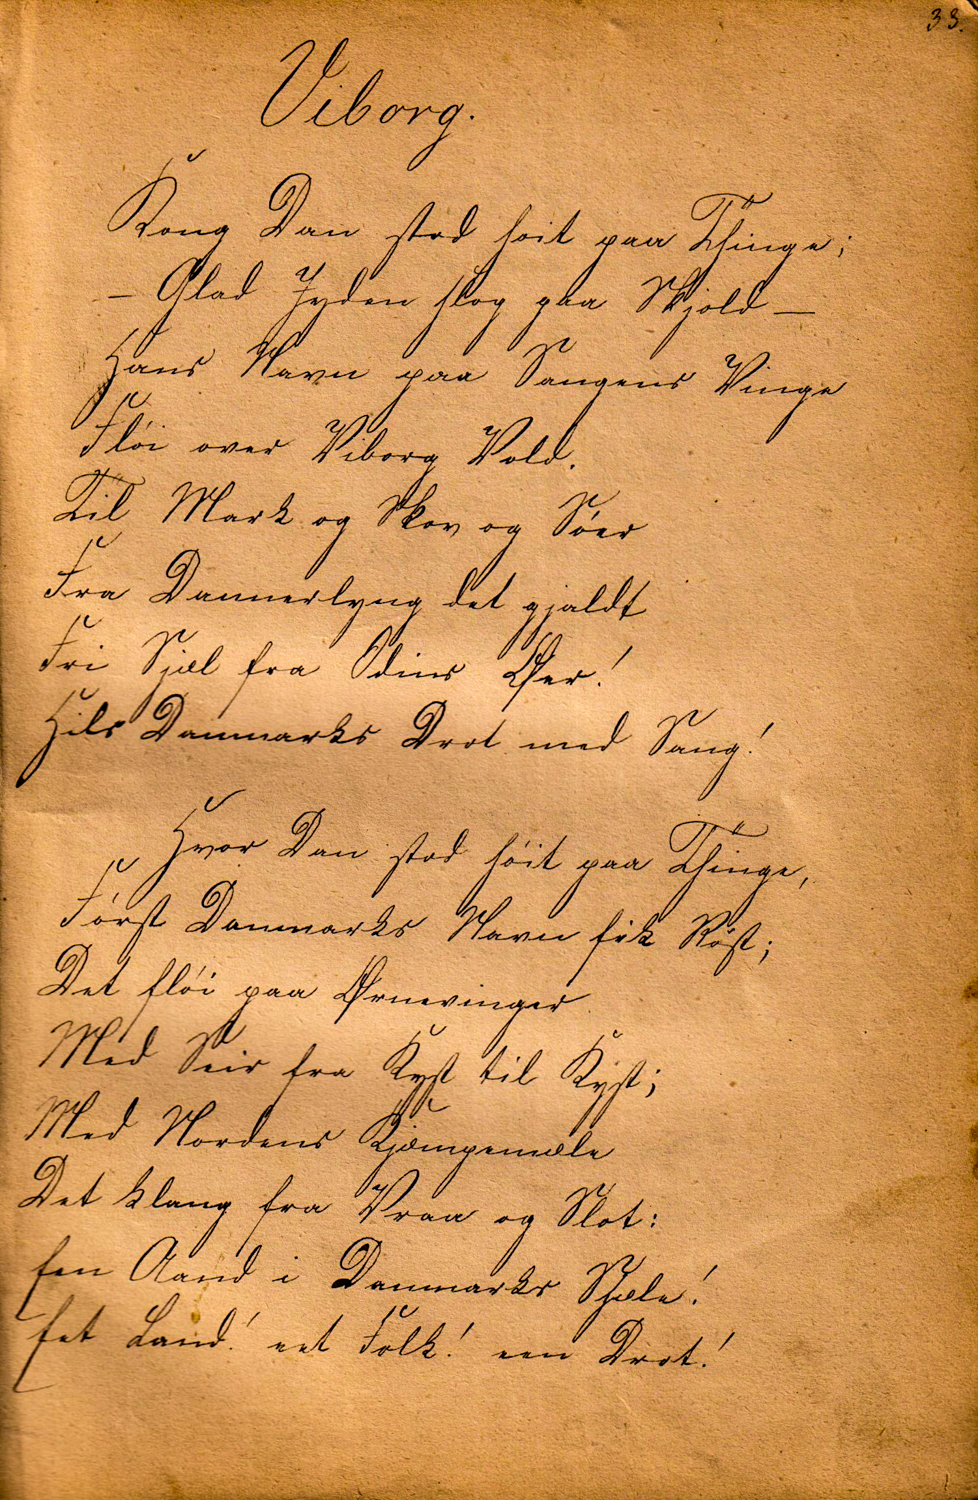 33.
Viborg.
Kong Dan stod höit paa Thinge;
– Glad Jyden slog paa Skjold –
Hans Navn paa Sangens Vinge
Flói over Viborg Vold.
Til Mark og Skov og Sóer
Fra Dannerlyng det gjaldt
Fri Sjæl fra Odins Øer!
Hils Danmarks Drot med Sang!
Hvor Dan stod hóit paa Thinge,
Fórst Danmarks Navn fik Röst;
Det flói paa Ørnevinger
Med Seir fra Kyst til Kyst;
Med Nordens Kjæmpemæle
Det klang fra Vraa og Slot:
Een Aand i Danmarks Sjæle!
Eet Land! eet Folk! een Drot!